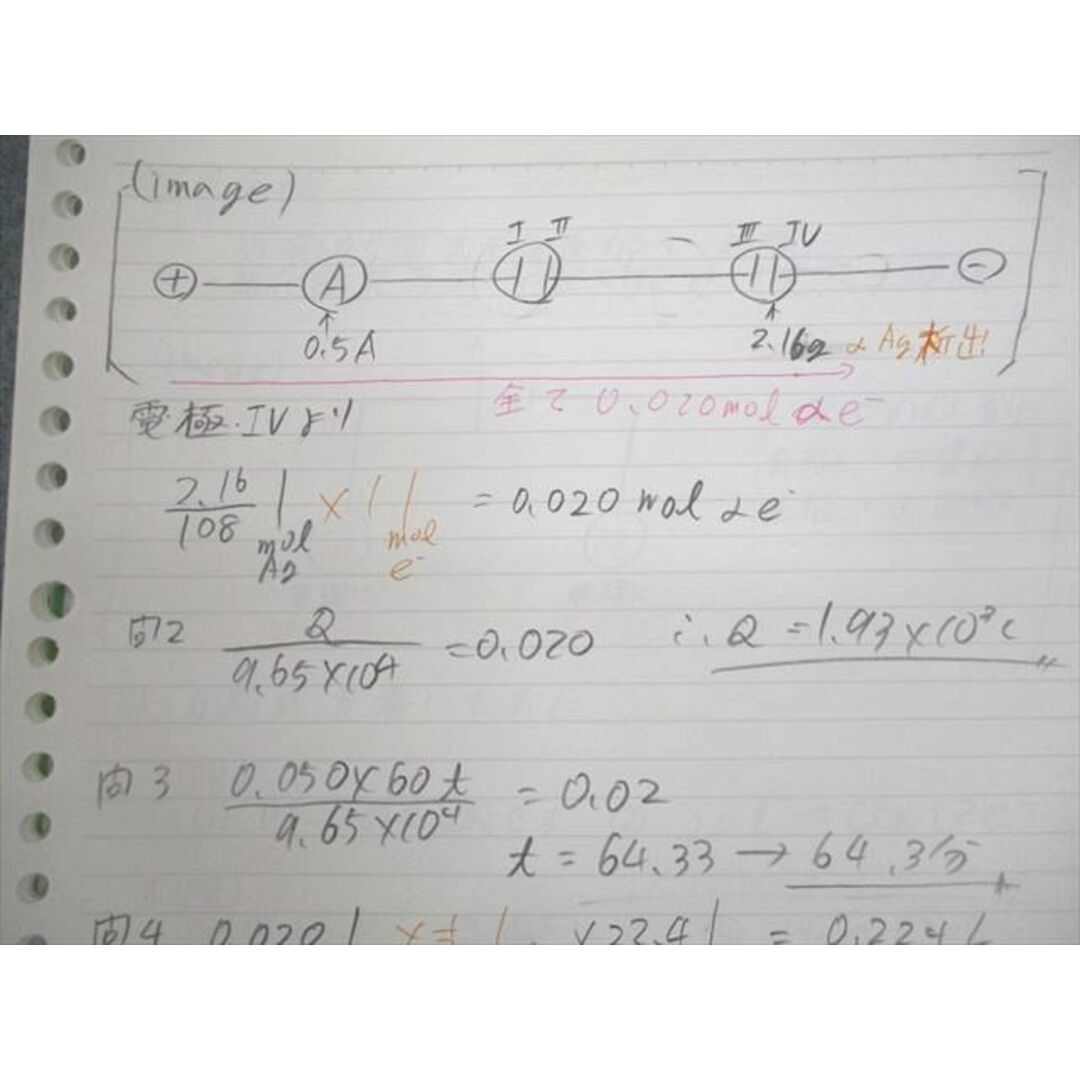 (image)
I II III IV
⊕ A ⊖
0.5A 2.16g の Ag析出!
全て 0.020mol の e⁻
電極.IVより
2.16/108 | mol Ag × 1 | mol e⁻ = 0.020 mol の e⁻
問2 Q/9.65×10⁴ = 0.020 ∴ Q = 1.93×10³C
問3 0.050×60t/9.65×10⁴ = 0.02
t = 64.33 → 64.3分
問4 0.020 | × | ×22.4 | = 0.224L